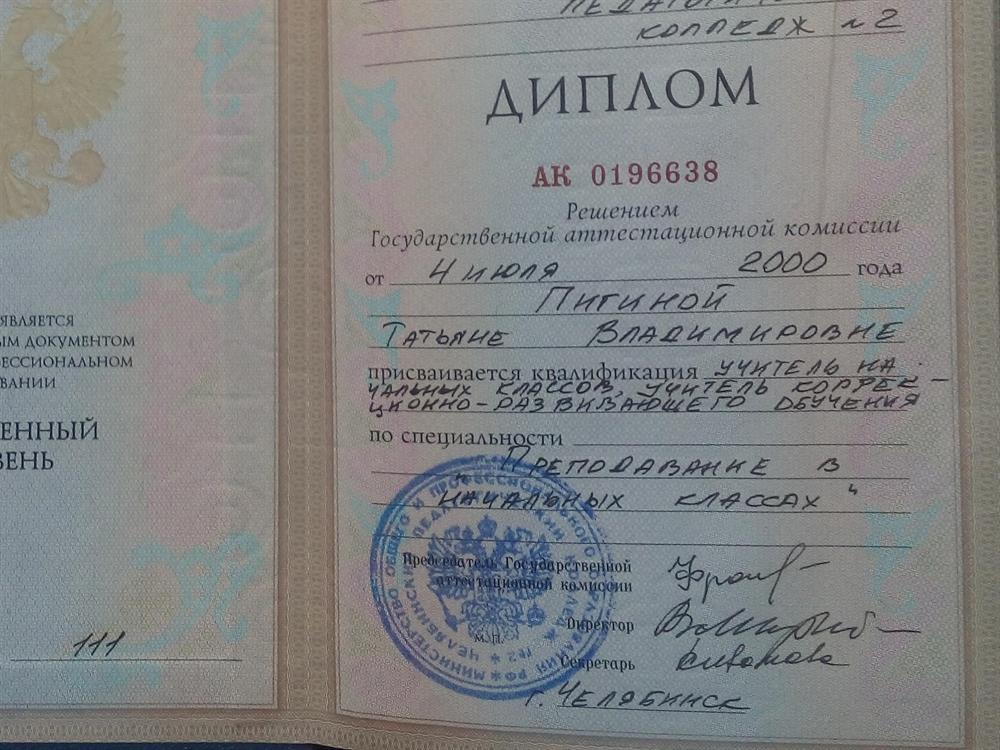 ЯВЛЯЕТСЯ
ЫМ ДОКУМЕНТОМ
ЕССИОНАЛЬНОМ
ВАНИИ
ЕННЫЙ
ВЕНЬ
111
КОЛЛЕДЖ №2
ДИПЛОМ
АК 0196638
Решением
Государственной аттестационной комиссии
от 4 июля 2000 года
Пигиной
Татьяне Владимировне
присваивается квалификация учитель на
чальных классов, учитель коррек-
ционно-развивающего обучения
по специальности
"Преподавание в
начальных классах"
Председатель Государственной
аттестационной комиссии
Директор
М.П.
Секретарь
г. Челябинск
МИНИСТЕРСТВО ОБЩЕГО И ПРОФЕССИОНАЛЬНОГО ОБРАЗОВАНИЯ РФ
ЧЕЛЯБИНСКИЙ ПЕДАГОГИЧЕСКИЙ КОЛЛЕДЖ №2